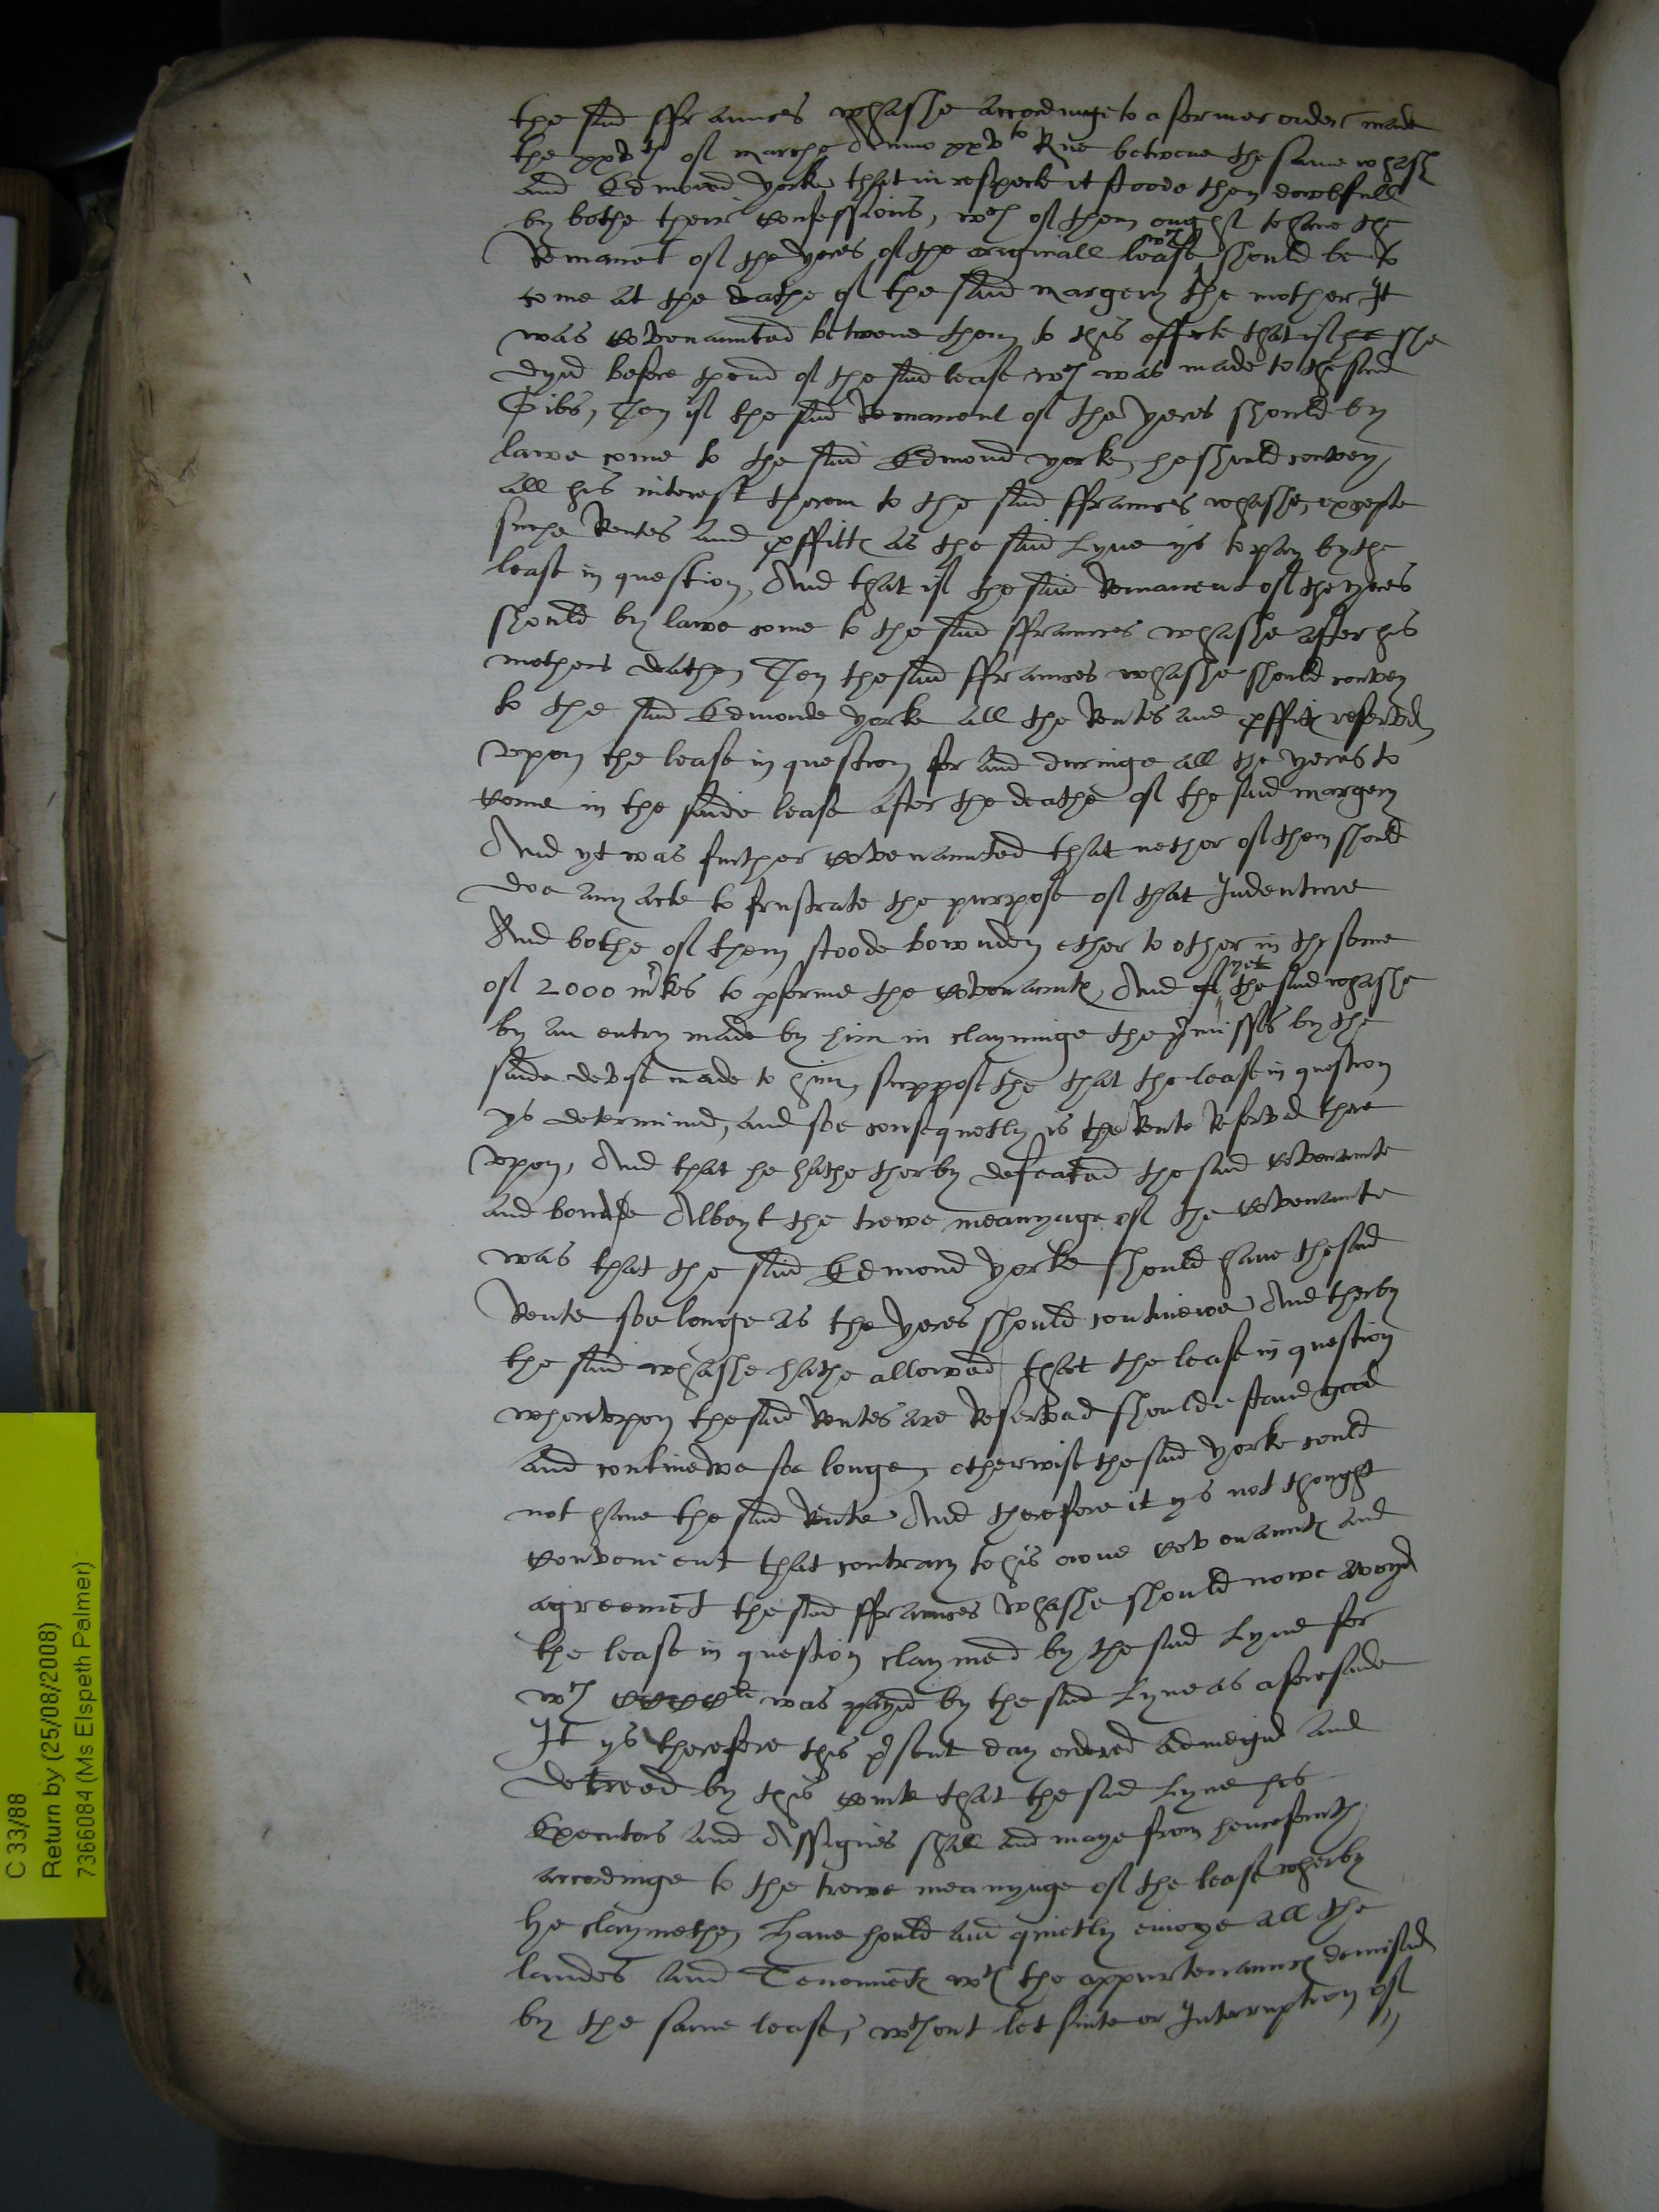 the said ffraunces Whashe accordinge to a former order made
the xxvth of Marche Anno xxvto Rne betwene the same Whash
and Edmond Yorke that in respecte it stoode then dowbfull
by bothe their confessions, wch of them ought to have the
Remanet of the yeres of the originall lease wch should be to
come at the deathe of the said Margery the mother It
was covenaunted betwene them to this effecte that if he she
dyed before thend of the said lease wch was made to the said
Gibs, Then if the said Remanent of the yeres should by
lawe come to the said Edmond Yorke, he should convey
all his interest therein to the said ffraunces Whashe, excepte
suche Rentes and pffitts as the said Lyne ys to pay by the
lease in question, And that if the said Remanent of the yeres
should by lawe come to the said ffraunces Whashe after his
mothers deathe, Then the said ffraunces Whashe should convey
to the said Edmonde Yorke all the Rentes and pffitts reserved
upon the lease in question for and duringe all the yeres to
come in the saide lease after the deathe of the said Margery
And yt was further covenaunted that nether of them should
doe any acte to frustrate the purpose of that Indenture
And bothe of them stoode bownden ether to other in the some
of 2000 mrkes to pforme the covenaunts, And yet the said Whashe
by an entry made by him in clayminge the pmisses by the
saide devise made to him, supposethe that the lease in question
ys determined, and soe consequetly is the Rente Reserved there
upon, And that he hathe therby defeated the said covenante
and bonde Albeyt the trewe meanynge of the covenante
was that the said Edmond Yorke should have the said
Rente soe longe as the yeres should continewe And therby
the said Whashe hathe allowed that the lease in question
wherevpon the said Rentes are Reserved should stand good
and continewe soe longe, otherwise the said Yorke could
not have the said Rente And therefore it ys not thought
convenient that contrary to his owne covenaunts and
agreemet the said ffraunces Whashe should nowe avoyd
the lease in question claymed by the said Lyne for
wch ccccli was payed by the said Lyne as aforesaide
It ys therefore this psent day ordered adiudged and
decreed by this courte that the said Lyne his
Executors and Assignes shall and maye from henceforth
accordinge to the trewe meanynge of the lease wherby
he claymethe, Have hould and quietly enioye all the
landes and Tenements wth the appurtenaunces demised
by the same lease, wthout let suite or Interruption of

C 33/88
Return by (25/08/2008)
7366084 (Ms Elspeth Palmer)